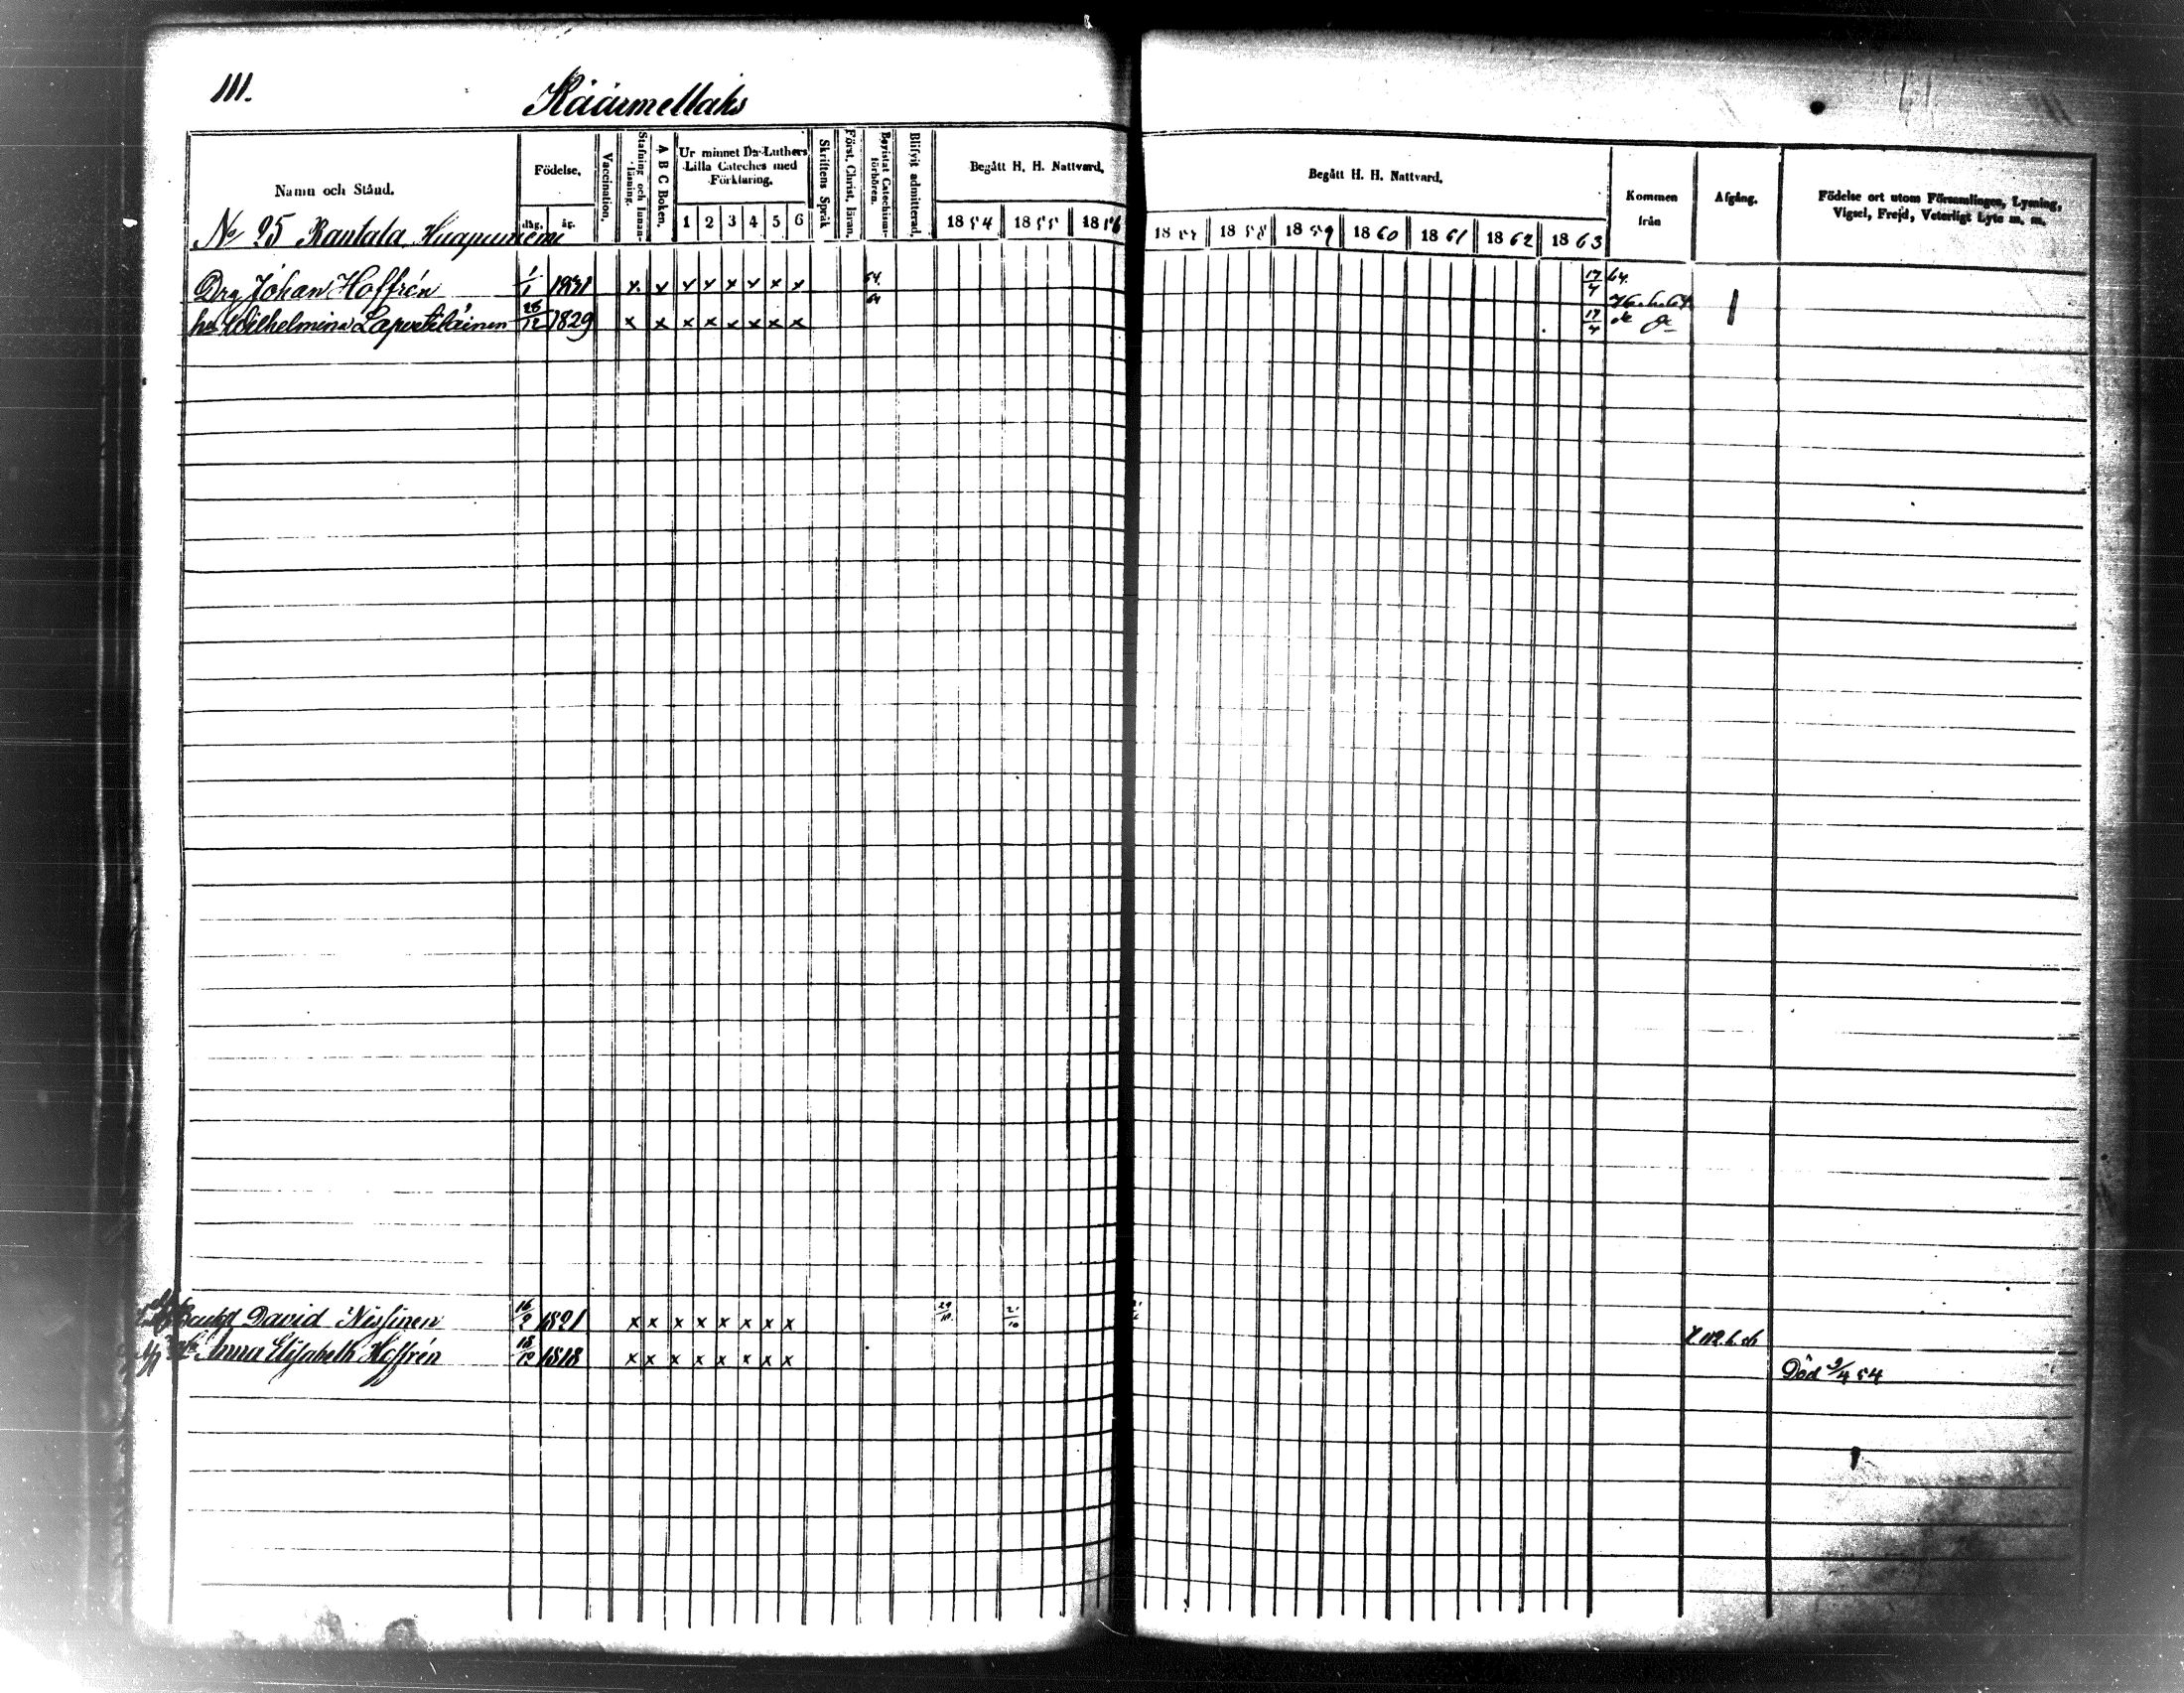 111.
Käärmellaks
Namn och Stånd.
Födelse.
dag.
år.
Vaccination.
Stafning och Innanläsning.
A B C Boken.
Ur minnet Dr Luthers Lilla Cateches med Förklaring.
1 2 3 4 5 6
Skriftens Språk
Först. Christ. läran.
Bevistat Catechismiförhören.
Blifvit admitterad.
Begått H. H. Nattvard.
1854 1855 1856
Begått H. H. Nattvard.
1857 1858 1859 1860 1861 1862 1863
Kommen från
Afgång.
Födelse ort utom Församlingen, Lysning, Vigsel, Frejd, Veterligt Lyte m. m.
No 25 Rantala
Drg Johan Hoffrén 1/1 1831 x x x x x x x x 64. 17/4 64.
hu Wilhelmina 26/12 1829 x x x x x x x x 64 17/4
David Nissinen 16/2 1821 x x x x x x x x 29/10 21/10
Anna Elisabeth Hoffrén 18/12 1818 x x x x x x x x Död 2/4 54